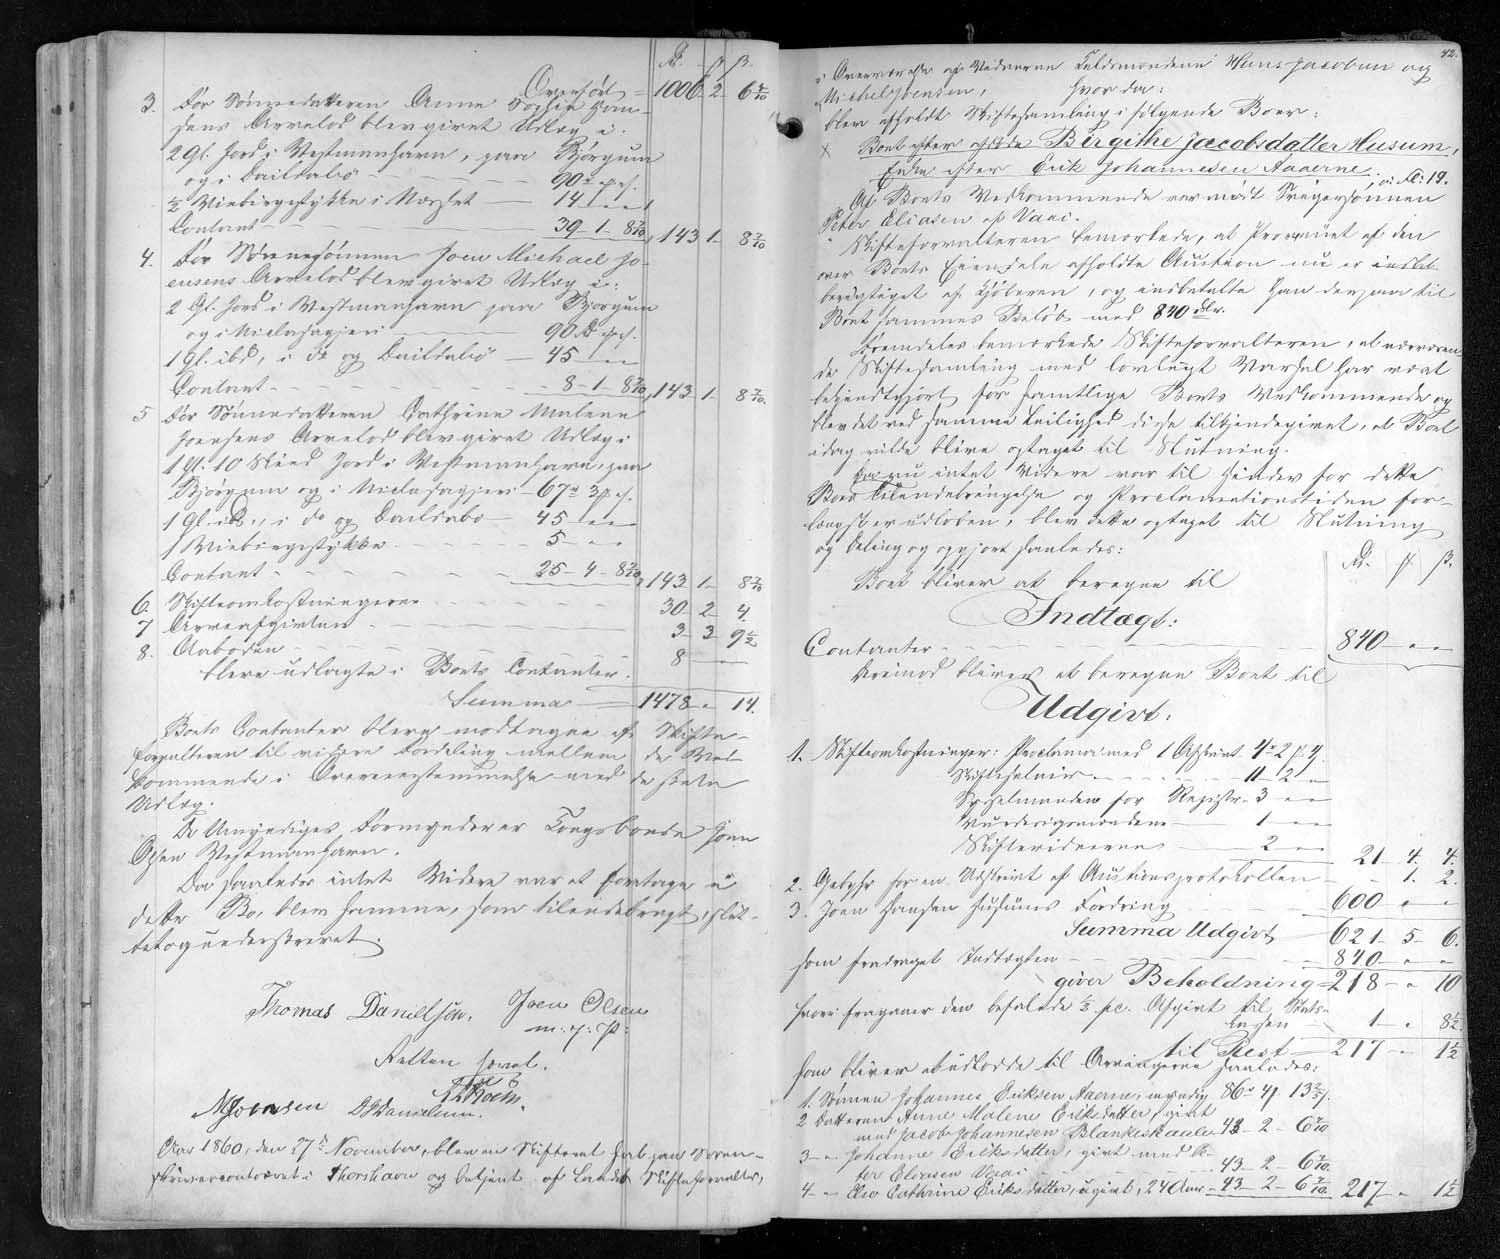 Rd. ₰ ß.
Overført = 1006 2 6 2/10
3. For Sønnedatteren Anne Sophie Han-
sens Arvelod blev givet Udlæg i:
2 Gl. Jord i Vestmanhavn, paa Bjørgum
og i Daildabø 90 rd. ₰ ß.
1/2 Miebirgestykke i Norset 14
Contant 39 - 1 - 8 7/10 143 1 8 7/10
4. For Sønnesønnen Joen Michael Jo-
ensens Arvelod blev givet Udlæg i:
2 Gl. Jord i Vestmanhavn paa Bjørgum
og i Niclasagjeri 90 Rd. ₰ ß.
1 Gl. ibd, i do og Daildabø 45
Contant 8 - 1 - 8 7/10 143 1 8 7/10
5 For Sønnedatteren Cathrine Malene
Joensens Arvelod blev givet Udlæg i
1 Gl. 10 Skind Jord i Vestmanhavn, paa
Bjørgum og i Niclasagjeri 67 rd 3 ₰ ß.
1 Gl. ibd., i do og Daildabø 45
1 Miebirgestykke 5
Contant 25 - 4 - 8 7/10 143 1 8 7/10
6. Skifteomkostningerne 30 2 4.
7 Arveafgiften 3 3 9 1/2
8. Aaboden 8
bleve udlagte i Boets Contanter.
Summa 1478 " 14.
Boets Contanter bleve modtagne af Skifte-
forvalteren til videre Fordeling mellem de Ved-
kommende i Overensstemmelse med de skete
Udlæg.
De Umyndiges Formynder er Kongsbonde Joen
Olsen Vestmanhavn.
Da saaledes intet Videre var at foretage i
dette Bo, blev samme, som tilendebragt, slut-
tet og underskrevet.
Thomas Danielsen. Joen Olsen
m. f. P:
Retten hævet.
Joensen D J Danielsen.
Aar 1860, den 27de November, blev en Skifteret sat paa Soren-
skrivercontoiret i Thorshavn og betjent af Landets Skifteforvalter,
42.
i Overværelse af Vidnerne Tildsmændene Hans Jacobsen og
Michel Joensen, hvor da:
blev afholdt Skiftesamling i følgende Boer:
x Boet efter afdøde Birgithe Jacobsdatter Husum,
Enke efter Erik Johannesen Aaerne, cfr. No: 19.
Af Boets Vedkommende var mødt Svigersønnen
Peter Eliasen af Vaai.
Skifteforvalteren bemærkede, at Provenuet af den
over Boets Eiendele afholdte Auction nu er indbet
berigtiget af Kjøberen, og indbetalte han derpaa til
Boet sammes Beløb med 840 Rdlr.
Fremdeles bemærkede Skifteforvalteren, at nærværen-
de Skiftesamling med lovligt Varsel har været
bekjendtgjort for samtlige Boets Vedkommende og
blev det ved samme Leilighed disse tilkjendegivet, at Boet
idag vilde blive optaget til Slutning.
Da nu intet Videre var til Hinder for dette
Boes Tilendebringelse og Proclamationstiden for-
længst er udløben, blev dette optaget til Slutning
og Deling og opgjort saaledes:
Boet bliver at beregne til Rd. ₰ ß.
Indtægt:
Contanter 840 " "
Herimod bliver at beregne Boet til
Udgivt:
1. Skifteomkostninger: Proclama med 1 Afskrivt 4 rd 2 ₰ 4.
Skiftesalair 11 - 2 "
Sysselmanden for Registr. 3 " "
Vurderingsmændene 1 " "
Skiftevidnerne 2 " "
21 4. 4.
2. Gebyhr for en Udskrivt af Auctionsprotokollen " 1. 2.
3. Joen Hansen Husums Fordring 600 " "
Summa Udgivt 621 5 6.
som fradraget Indtægten 840 " "
giver Beholdning 218 " 10
hvori fragaaer den befalede 1/2 pc. Afgivt til Stats-
kassen 1 " 8 1/2
til Rest 217 " 1 1/2
som bliver at udlodde til Arvingerne saaledes:
1. Sønnen Johannes Eriksen Aaerne, myndig 86 rd 4 ₰ 13 2/5 ß.
2 Datteren Anne Malene Eriksdatter, givt
med Jacob Johannesen Blankeskaale 43 - 2 - 6 7/10
3 - " Johanne Eriksdatter, givt med Pe-
ter Eliasen Vaai 43 - 2 - 6 7/10.
4 - " Else Cathrine Eriksdatter, ugivt, 24 Aar 43 - 2 - 6 7/10. 217 " 1 1/2